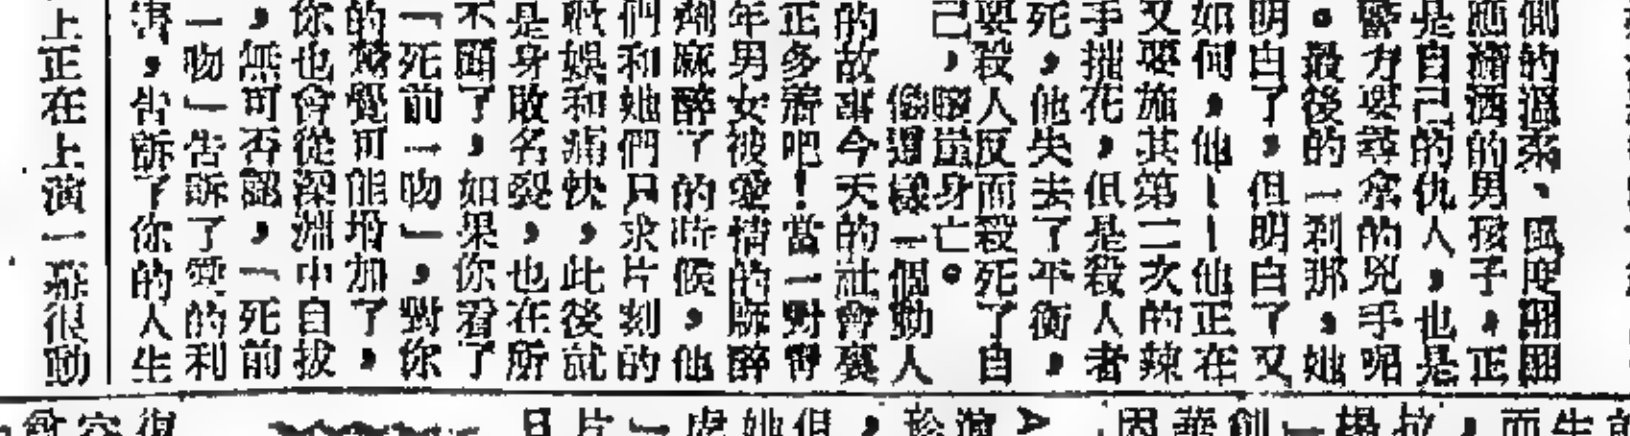 側的溫柔、風度翩翩
應瀟洒的男孩子，正
是自己的仇人，也是
警方要尋索的兇手呢
。最後的一刹那，她
明白了，但明白了又
如何，他——他正在
又要施其第二次的辣
手摧花，但是殺人者
死，他失去了平衡，
要殺人反而殺死了自
己，墮崖身亡。
像這樣一個動人
的故事今天的社會裏
正多着吧！當一對青
年男女被愛情的麻醉
劑麻醉了的時候，他
們和她們只求片刻的
歡娛和痛快，此後就
是身敗名裂，也在所
不顧了，如果你看了
「死前一吻」，對你
的警覺可能增加了，
你也會從深淵中自拔
，無可否認，「死前
一吻」告訴了愛的利
害，告訴了你的人生
上正在上演一幕很動